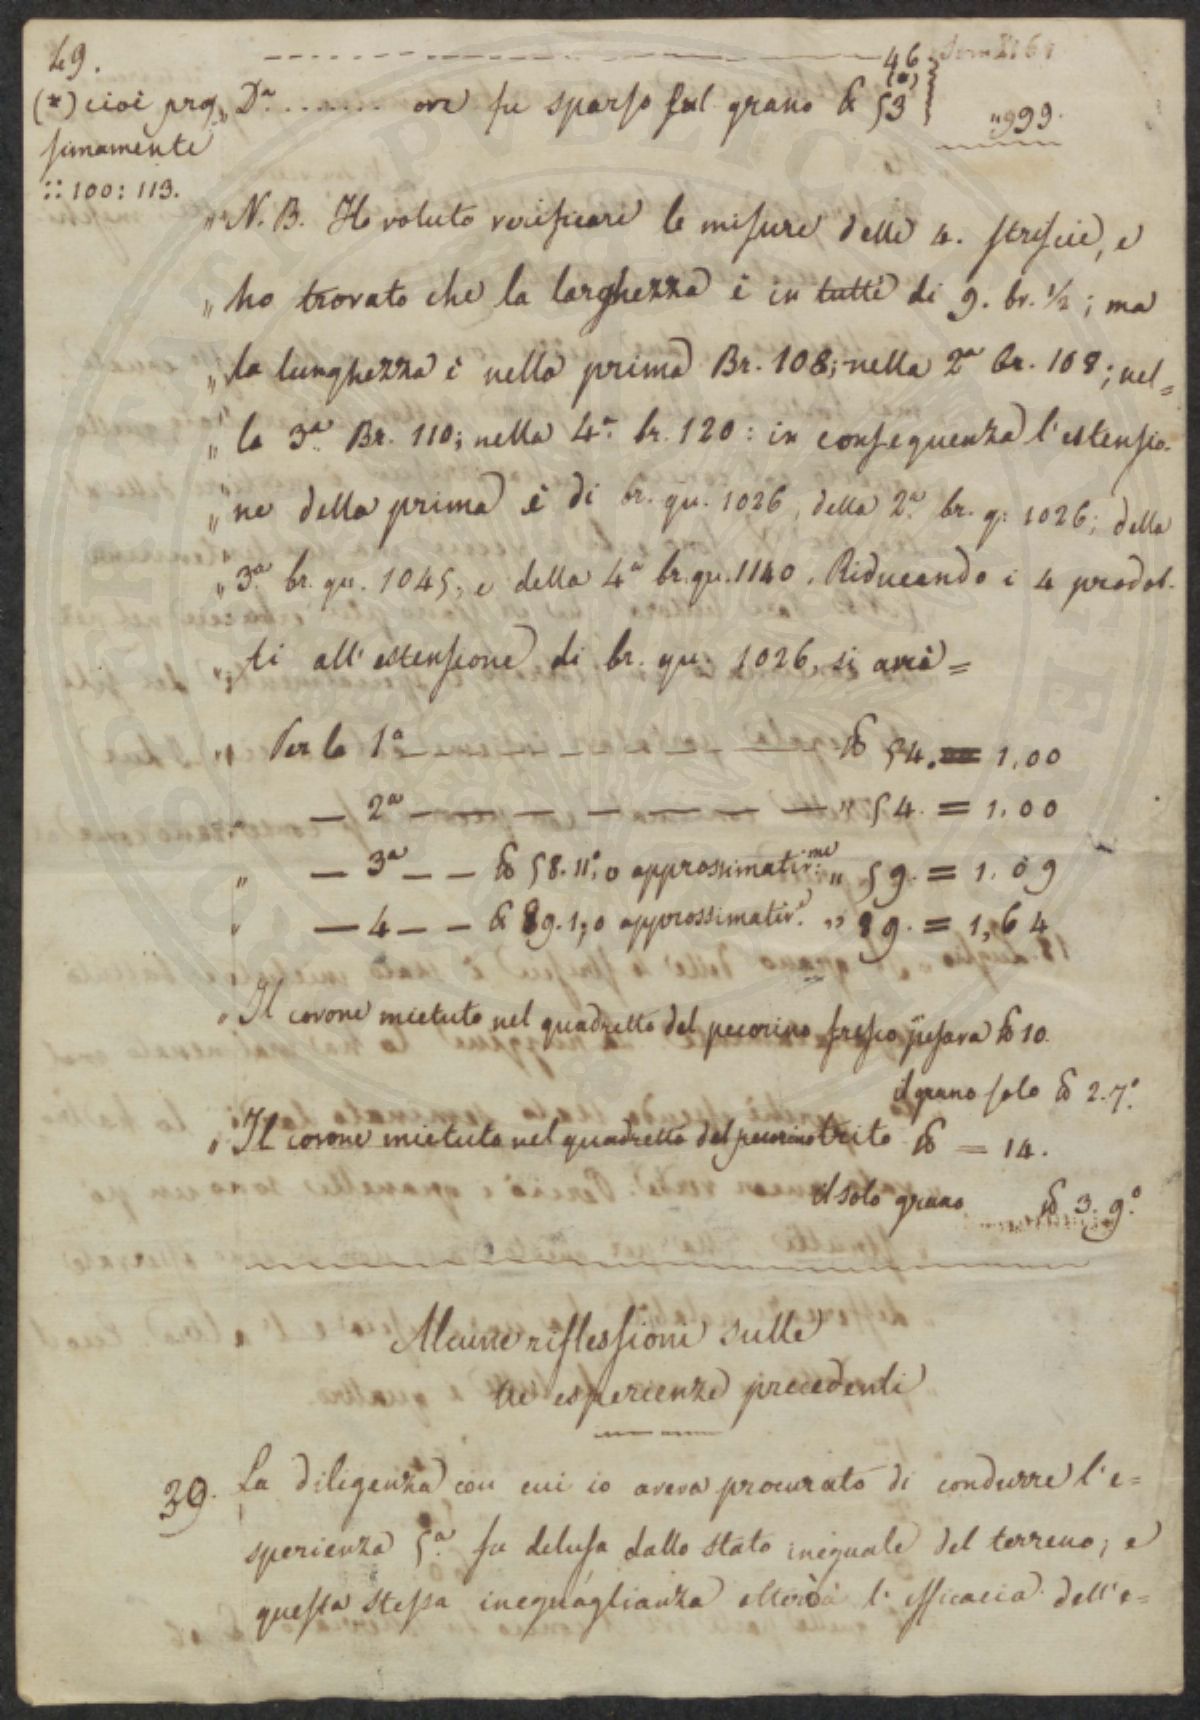 49.
(*) cioè pros„
simamente
:: 100: 113.
46
(*)
„ Dᵃ. ........ ove fu sparso sul grano ℔ 53
„999.
„ N. B. Ho voluto verificare le misure delle 4. striscie, e
„ ho trovato che la larghezza è in tutte di 9. br. ½; ma
„ la lunghezza è nella prima Br. 108; nella 2ᵃ br. 108; nel=
„ la 3ᵃ Br. 110; nella 4ᵃ. br. 120: in conseguenza l'estensio-
„ ne della prima è di br. qu. 1026, della 2ᵃ. br. q: 1026; della
„ 3ᵃ br. qu. 1045, e della 4ᵃ br. qu. 1140. Riducendo i 4 prodot-
„ ti all'estensione di br. qu. 1026, si avrà=
„ Per la 1ᵃ — — — — — — ℔ 54. = 1,00
„ — 2ᵃ — — — — — — — „ 54. = 1,00
„ — 3ᵃ — — ℔ 58. 11°, o approssimativ.ᵐᵉ „ 59. = 1,09
„ — 4 — — ℔ 89. 1, o approssimativ.ᵉ „ 89. = 1,64
„ Il covone mietuto nel quadretto del pecorino fresco pesava ℔ 10.
il grano solo ℔ 2. 7°.
„ Il covone mietuto nel quadretto del pecorino trito ℔ = 14.
il solo grano ℔ 3. 9°.
Alcune riflessioni sulle
tre esperienze precedenti
39. La diligenza con cui io aveva procurato di condurre l'e=
sperienza 5ᵃ. fu delusa dallo stato ineguale del terreno; e
questa stessa ineguaglianza alterò l'efficacia dell'e=